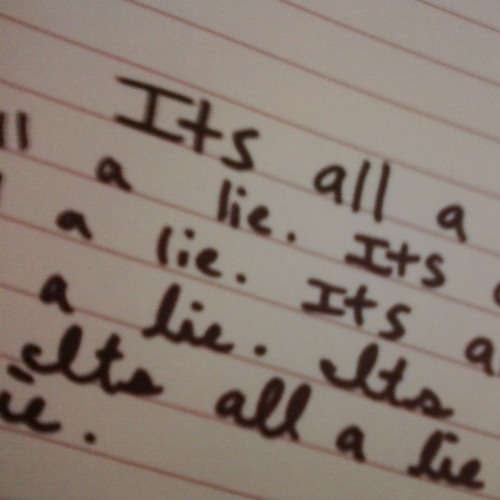 Its all a
ll a lie. Its
a lie. Its a
a lie. Its
Its all a lie
ie.